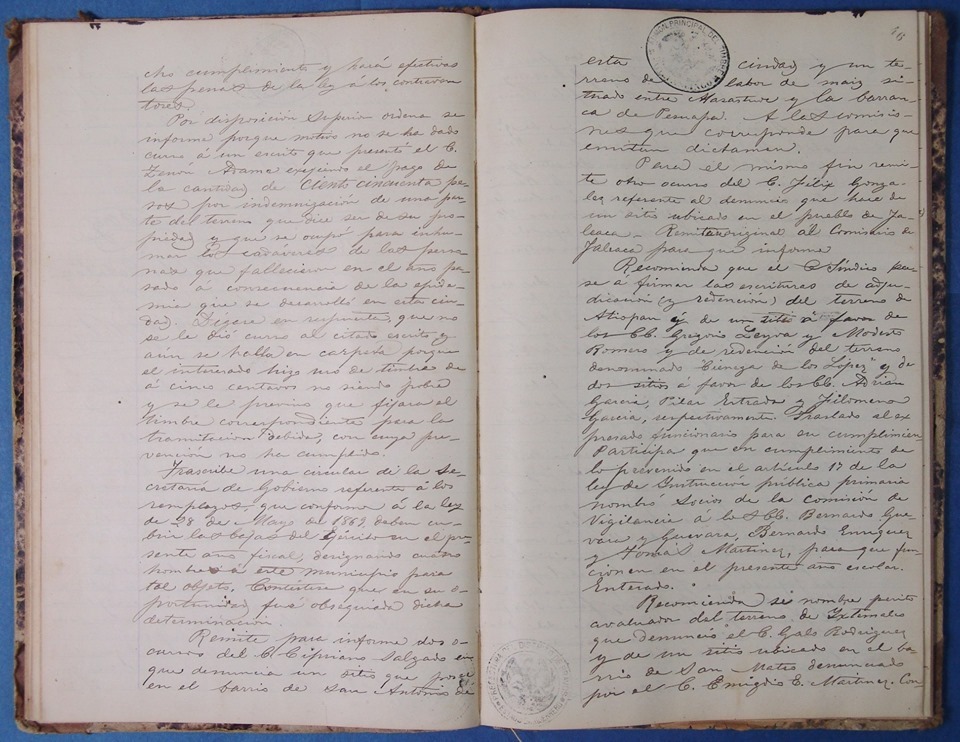 cho cumplimiento y hará efectivas
las penas de la ley á los contraven
tores.
Por disposición Superior ordena se
informe porque motivo no se ha dado
curso á un escrito que presentó el C.
Zenón Adame exigiendo el pago de
la cantidad de Ciento cincuenta pe-
sos por indemnización de una par-
te del terreno que dice ser de su pro-
piedad y que se ocupó para inhu-
mar los cadáveres de las perso-
nas que fallecieron en el año pa-
sado á consecuencia de la epide-
mia que se desarrolló en esta ciu-
dad. Digase en respuesta, que no
se le dió curso al citado escrito y
aun se halla en carpeta porque
el interesado hizo uso de timbre de
á cinco centavos no siendo pobre
y se le previno que fijara el
timbre correspondiente para la
tramitacion debida, con cuya pre-
vención no ha cumplido.
Trascribe una circular de la Se-
cretaría de Gobierno referente á los
remplazos, que conforme á la ley
de 28 de Mayo de 1869 deben cu-
brir las bajas del Ejército en el pre-
sente año fiscal, designando cuatro
hombres á este municipio para
tal objeto. Contéstese que en su o-
portunidad fué obsequiada dicha
determinación.
Remite para informe dos o-
cursos del C. Cipriano Salgado en
que denuncia un sitio que posee
en el barrio de San Antonio de
46
esta ciudad y un te-
rreno de labor de maiz si-
tuado entre y la barran-
ca de Pesuapa. A las comisio-
nes que corresponde para que
emitan dictamen.
Para el mismo fin remi-
te otro ocurso del C. Félix Gonza-
lez referente al denuncio que hace de
un sitio ubicado en el pueblo de Ja-
leaca. Remitase original al Comisario de
Jaleaca para que informe
Recomienda que el C. Síndico pa-
se á firmar las escrituras de adju-
dicación (y redención) del terreno de
Atiopan y de un sitio á favor de
los CC. Gregorio Leyva y Modesto
Romero y de redención del terreno
denominado "Cienega de los López" y de
dos sitios á favor de los CC. Adrian
Garcia, Pilar Estrada y Filomeno
Garcia, respectivamente. Traslado al ex
presado funcionario para su cumplimien
Participa que en cumplimiento de
lo prevenido en el articulo 17 de la
ley de Instruccion pública primaria
nombró Socios de la Comisión de
Vigilancia á los CC. Bernardo Gue-
vara y Guevara, Bernardo Enriquez
y Tómas Martinez, para que fun-
cionen en el presente año escolar.
Enterado.
Recomienda se nombre perito
avaluador del terreno de
que denunció el C. Galo Rodriguez
y de un sitio ubicado en el ba-
rrio de San Mateo denunciado
por el C. Emigdio E. Martinez. Con-